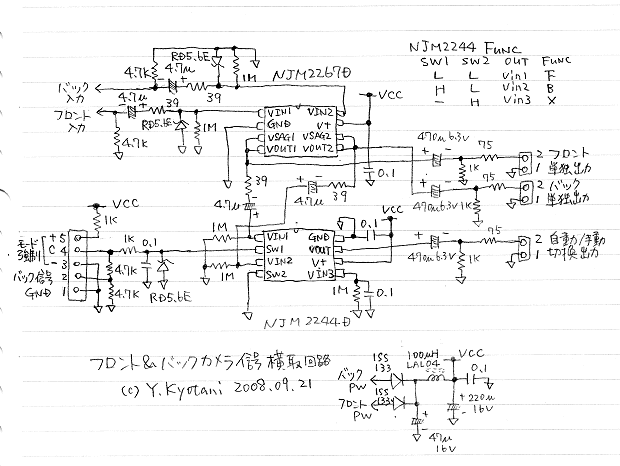 RD5.6E
4.7K
4.7μ
39
1M
NJM2267D
バック
入力
4.7μ
39
フロント
入力
RD5.6E
1M
4.7K
VIN1 VIN2
GND V+
VSAG1 VSAG2
VOUT1 VOUT2
VCC
0.1
NJM2244 FUNC
SW1 SW2 OUT FUNC
L L Vin1 F
H L Vin2 B
- H Vin3 X
470μ6.3V
75
1K
2 フロント
1 単独出力
75
470μ6.3V
1K
2 バック
1 単独出力
39
4.7μ
39
4.7μ
VCC
1K
1M
1M
VIN1 GND
SW1 VOUT
VIN2 V+
SW2 VIN3
0.1
VCC
470μ6.3V
75
1K
2 自動/手動
1 切換出力
モード
+ 5
C 4
- 3
バック信号 2
GND 1
1K
0.1
4.7K
4.7K
RD5.6E
1M
0.1
NJM2244D
フロント&バックカメラ信号横取回路
(c) Y.Kyotani 2008.09.21
1SS
133
100μH
LAL04
VCC
0.1
バック
PW
フロント
PW
1SS
133
47μ
16V
220μ
16V